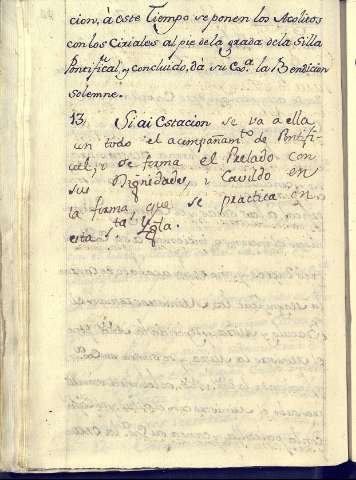 cion, à este Tiempo se ponen los Acolitos
con los Ciriales al pie de la grada de la Silla
Pontifical, y concluido, dà su Ess.ª la Bendicion
solemne.
13. Si ai Estacion se va a ella
un todo el acompañam.to de Pontifi-
cal, i se forma el Prelado con
sus Dignidades, i Cavildo en
la forma que se practica en
esta S.ta Igla.